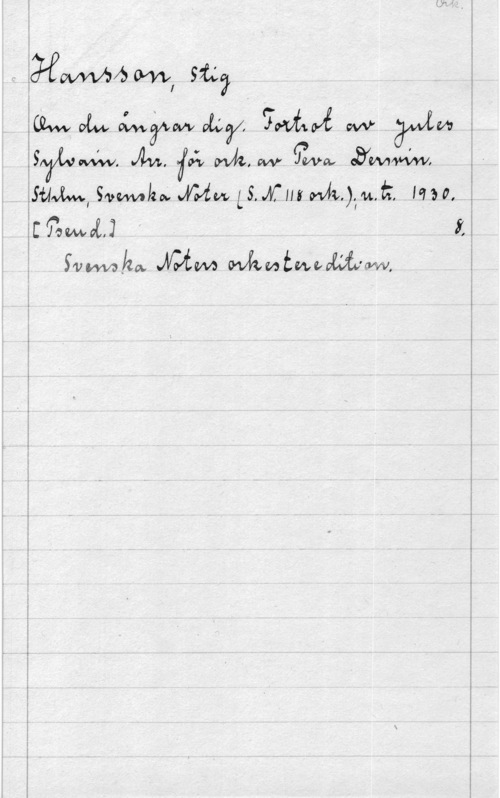 Ork.
Hansson, Stig
Om du ångrar dig. Foxtrot av Jules
Sylvain. Arr. för ork. av Peva Derwin.
Sthlm, Svenska Noter (S. N. 118 ork.); u. tr. 1930.
[Pseud.] 8.
Svenska Noters orkesteredition.